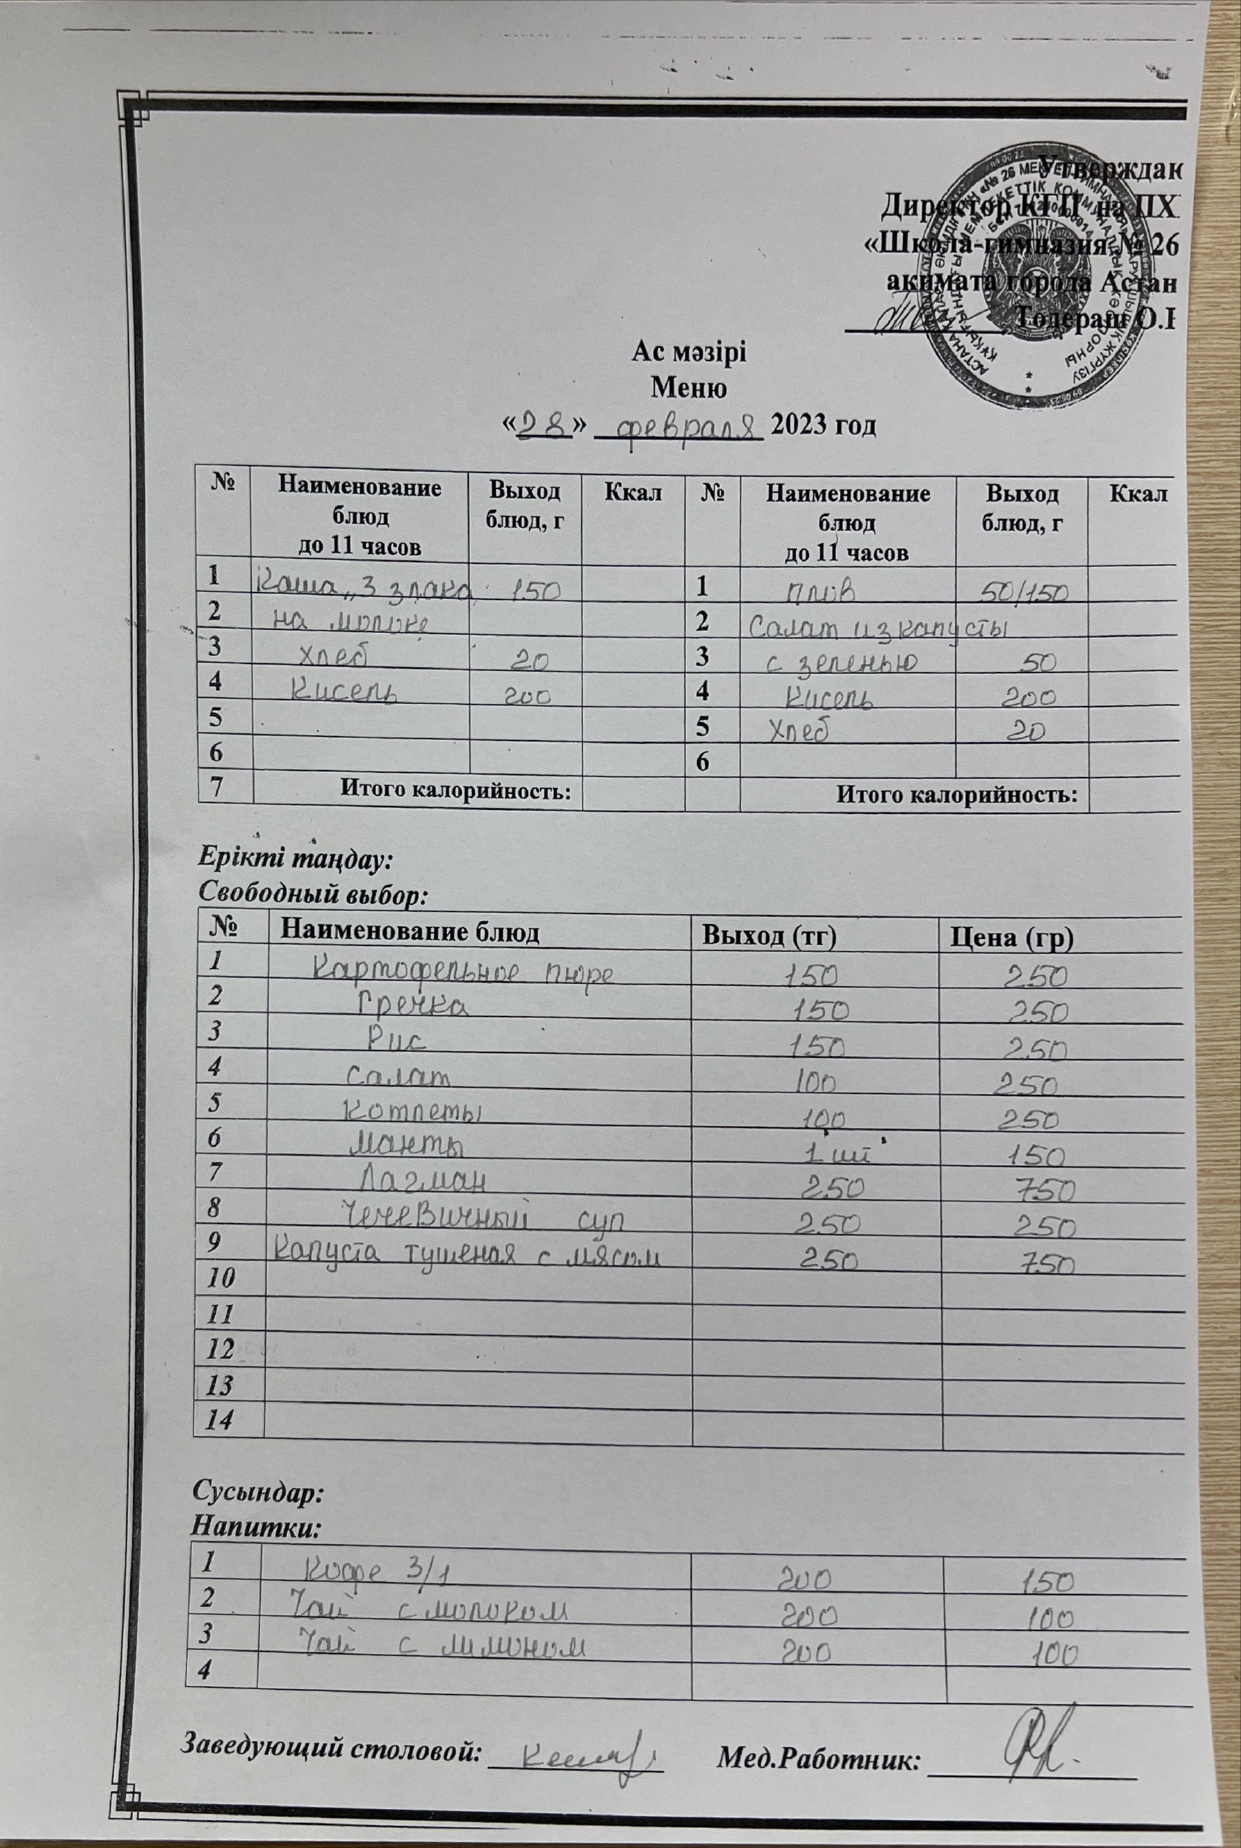 Утверждак
Директор КГП на ПХ
«Школа-гимназия № 26
акимата города Астан
Тодераш О.
Ас мәзірі
Меню
«28» февраля 2023 год
№ Наименование блюд до 11 часов Выход блюд, г Ккал № Наименование блюд до 11 часов Выход блюд, г Ккал
1 Каша „3 злака 150 1 плов 50/150
2 на молоке 2 Салат из капусты
3 хлеб 20 3 с зеленью 50
4 Кисель 200 4 Кисель 200
5 5 Хлеб 20
6 6
7 Итого калорийность: Итого калорийность:
Ерікті таңдау:
Свободный выбор:
№ Наименование блюд Выход (тг) Цена (гр)
1 Картофельное пюре 150 250
2 Гречка 150 250
3 Рис 150 250
4 Салат 100 250
5 Котлеты 100 250
6 Манты 1 шт 150
7 Лагман 250 750
8 Чечевичный суп 250 250
9 Капуста тушеная с мясом 250 750
10
11
12
13
14
Сусындар:
Напитки:
1 Кофе 3/1 200 150
2 Чай с молоком 200 100
3 Чай с лимоном 200 100
4
Заведующий столовой: Мед.Работник: